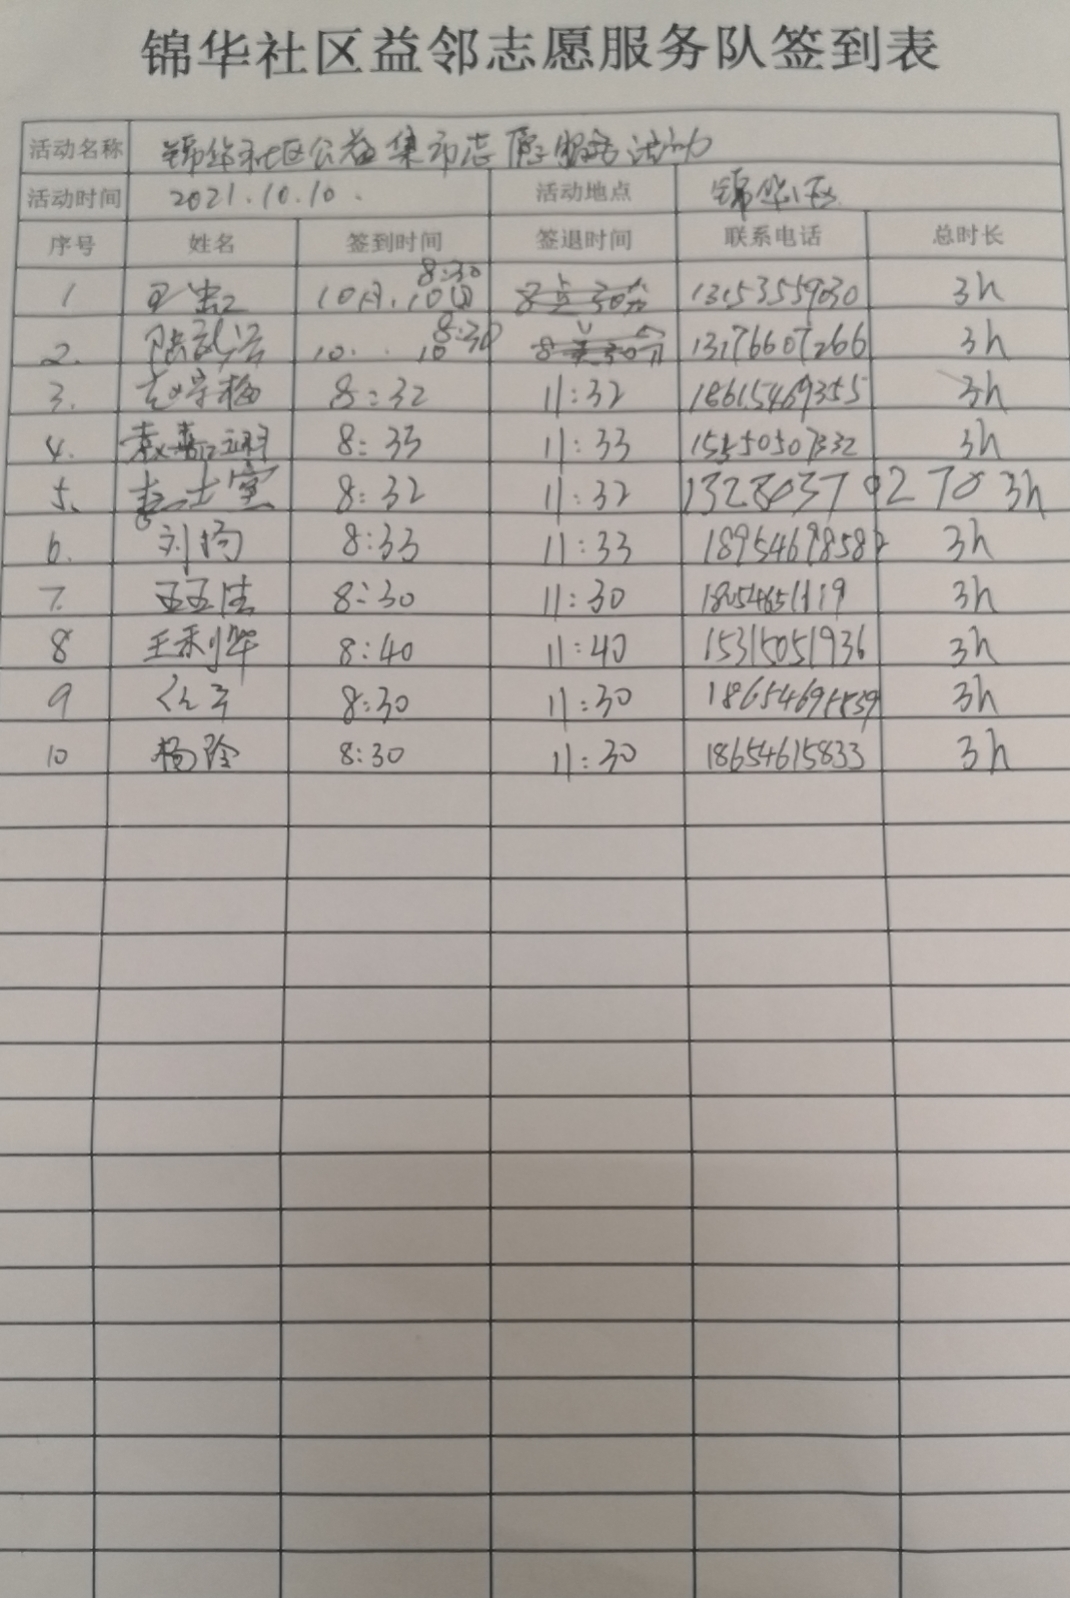 锦华社区益邻志愿服务队签到表
活动名称 锦华社区公益集市志愿服务活动
活动时间 2021.10.10. 活动地点 锦华小区
序号 姓名 签到时间 签退时间 联系电话 总时长
1 10月.10日 8:30 8点30分 13153559030 3h
2. 10. . 10 8:30 8点30分 13176607266 3h
3. 8:32 11:32 18615469355 3h
4. 8:33 11:33 3h
5. 8:32 11:32 3h
6. 刘杨 8:33 11:33 3h
7. 8:30 11:30 3h
8 王利华 8:40 11:40 15315051936 3h
9 8:30 11:30 3h
10 杨玲 8:30 11:30 18654615833 3h